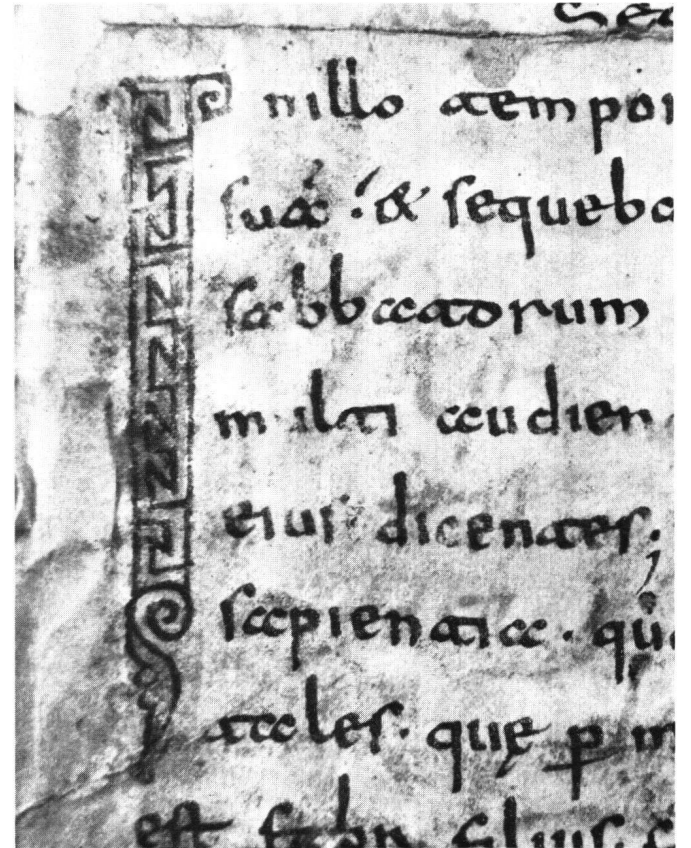 Sec
Inillo tempor
suā & sequeba
sabbatorum
multi audien
eius dicentes;
sapientia. qu
tales. quę p m
est